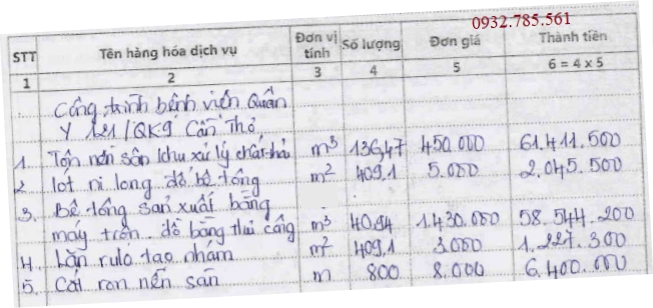 0932.785.561
STT Tên hàng hóa dịch vụ Đơn vị tính Số lượng Đơn giá Thành tiền
1 2 3 4 5 6 = 4 x 5
Công trình bệnh viện Quân
Y 121/QK9 Cần Thơ
1. Tôn nền sân khu xử lý chất thải m³ 136,47 450.000 61.411.500
2 lót ni long đổ bê tông m² 409,1 5.000 2.045.500
3. Bê tông sản xuất bằng
máy trộn đổ bằng thủ công m³ 40.94 1.430.000 58.544.200
4 Lăn rulo tạo nhám m² 409,1 3.000 1.227.300
5. Cắt ron nền sân m 800 8.000 6.400.000